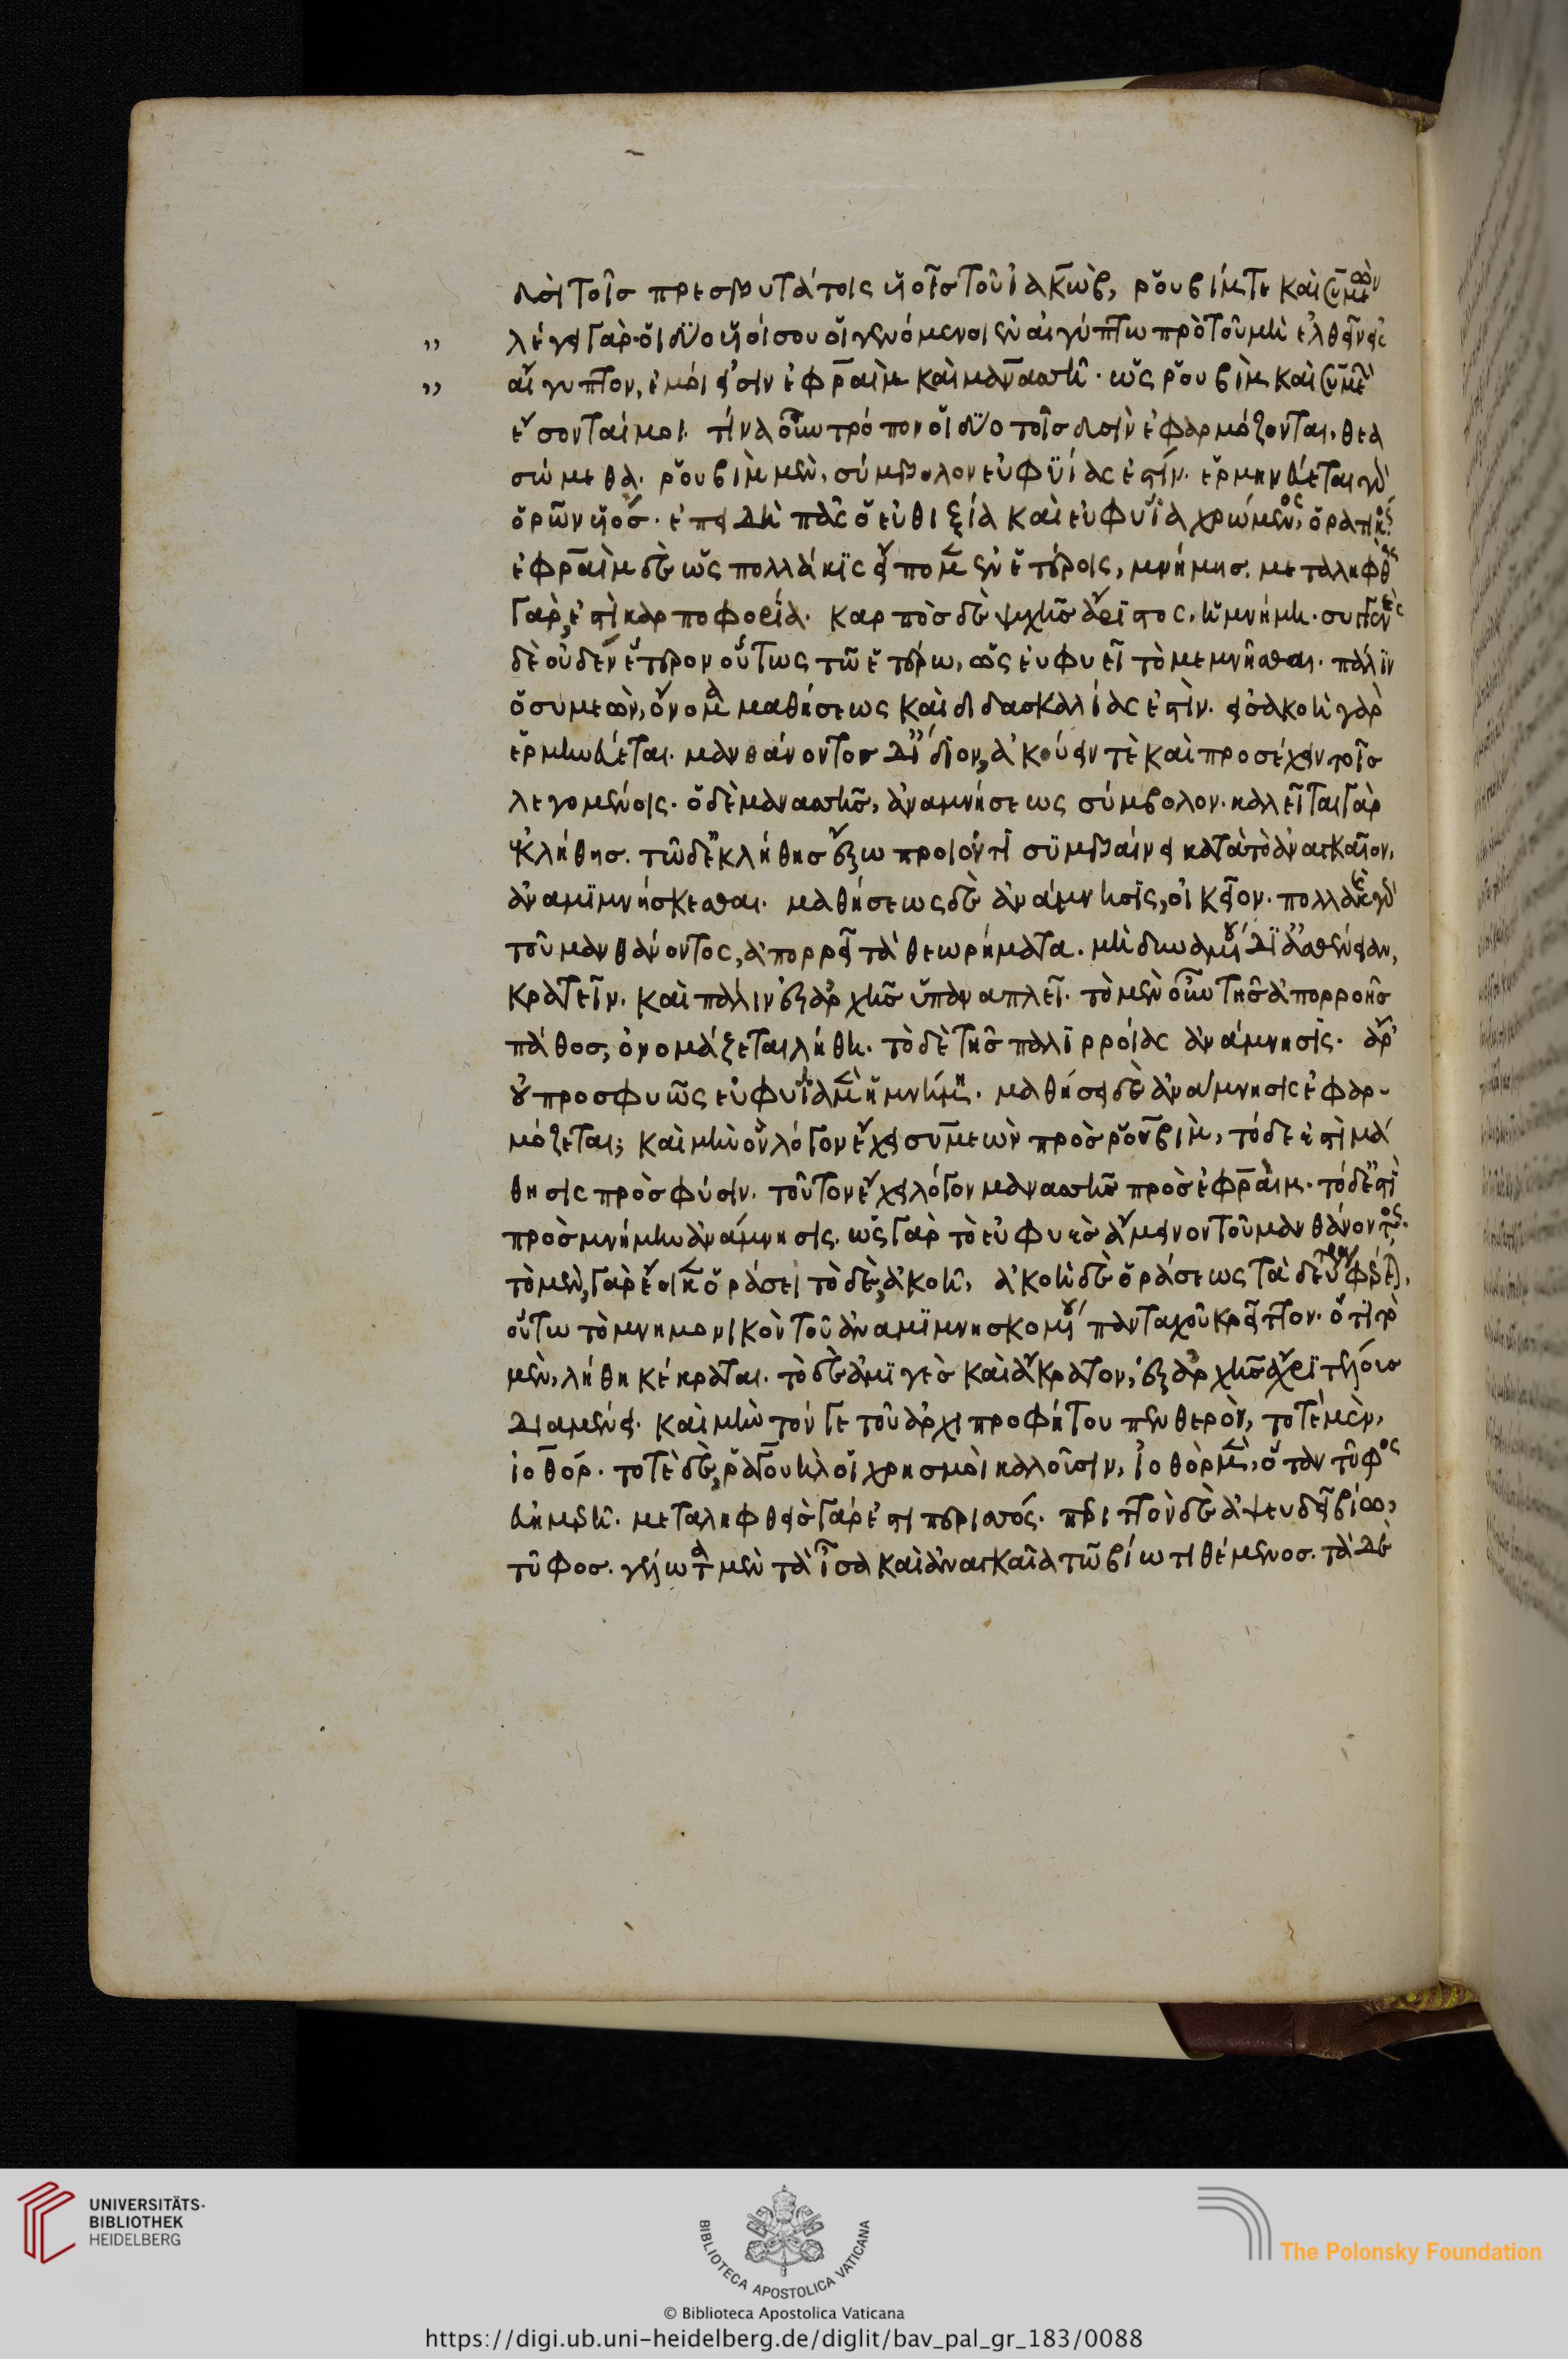 δυσὶ τοῖς πρεσβυτάτοις υἱοῖς τοῦ ἰακὼβ, ῥουβίμ τε καὶ συμεών
„ λέγει γὰρ· οἱ δύο υἱοί σου οἱ γενόμενοι ἐν αἰγύπτω πρὸ τοῦ μὴ ἐλθεῖν εἰς
„ αἴγυπτον, ἐμοί εἰσιν ἐφραὶμ καὶ μανασσῆ. ὡς ῥουβὶμ καὶ συμεὼν
ἔσονταί μοι. τίνα οὖν τρόπον οἱ δύο τοῖς δυσὶν ἐφαρμόζονται, θεα
σώμεθα. ῥουβὶμ μὲν, σύμβολον εὐφυΐας ἐστίν. ἑρμηνεύεται γὰρ
ὁρῶν υἱός. ἐπειδὴ πᾶς ὁ εὐθιξία καὶ εὐφυΐα χρώμενος, ὁρατικός.
ἐφραὶμ δὲ ὡς πολλάκις εἴπομεν ἐν ἑτέροις, μνήμης. μεταληφθεὶς
γὰρ, ἐστὶ καρποφορία. καρπὸς δὲ ψυχῆς ἄριστος, ἡ μνήμη. συγγενὲς
δὲ οὐδὲν ἕτερον οὕτως τῶ ἑτέρω, ὡς εὐφυεῖ τὸ μεμνῆσθαι. πάλιν
ὁ συμεὼν, ὄνομα μαθήσεως καὶ διδασκαλίας ἐστίν. εἰσακοὴ γὰρ
ἑρμηνεύεται. μανθάνοντος δ' ἴδιον, ἀκούειν τὲ καὶ προσέχειν τοῖς
λεγομένοις. ὁ δὲ μανασσῆς, ἀναμνήσεως σύμβολον. καλεῖται γὰρ
ἐκ λήθης. τῶ δ' ἐκ λήθης ἔξω προϊόντι συμβαίνει κατὰ τὸ ἀναγκαῖον,
ἀναμιμνήσκεσθαι. μαθήσεως δὲ ἀνάμνησις, οἰκεῖον. πολλάκις γὰρ
τοῦ μανθάνοντος, ἀπορρεῖ τὰ θεωρήματα. μὴ δυναμένου δι' ἀσθένειαν,
κρατεῖν. καὶ πάλιν ἐξ ἀρχῆς ὑπαναπλεῖ. τὸ μὲν οὖν τῆς ἀπορροῆς
πάθος, ὀνομάζεται λήθη. τὸ δὲ τῆς παλιρροίας ἀνάμνησις. ἆρ'
οὐ προσφυῶς εὐφυΐα μὲν ἡ μνήμη. μαθήσει δὲ ἀνάμνησις ἐφαρ-
μόζεται; καὶ μὴν ὃν λόγον ἔχει συμεὼν πρὸς ῥουβὶμ, τό δε ἐστὶ μά
θησις πρὸς φύσιν. τοῦτον ἔχει λόγον μανασσῆς πρὸς ἐφραὶμ. τὸ δ' ἐστὶ
πρὸς μνήμην ἀνάμνησις. ὡς γὰρ τὸ εὐφυὲς ἄμεινον τοῦ μανθάνοντος.
τὸ μὲν, γὰρ ἔοικεν ὁράσει τὸ δὲ, ἀκοῆ, ἀκοὴ δὲ ὁράσεως τὰ δευτερεῖα φέρεται,
οὕτω τὸ μνημονικὸν τοῦ ἀναμιμνησκομένου πανταχοῦ κρεῖττον. ὅτι τὸ
μὲν, λήθη κέκραται. τὸ δὲ ἀμιγὲς καὶ ἄκρατον, ἐξ ἀρχῆς ἄχρι τέλους
διαμένει. καὶ μὴν τόν γε τοῦ ἀρχιπροφήτου πενθερὸν, τοτὲ μὲν,
ἰοθόρ. τοτὲ δὲ, ῥαγουὴλ οἱ χρησμοὶ καλοῦσιν, ἰοθὸρ μὲν, ὅταν τῦφος
εὐημερῆ. μεταληφθεὶς γάρ ἐστι περισσός. περιττὸν δὲ ἀψευδεῖ βίω,
τῦφος. γέλωτα μὲν τὰ ἴσα καὶ ἀναγκαῖα τῶ βίω τιθέμενος. τὰ δὲ
UNIVERSITÄTS-
BIBLIOTHEK
HEIDELBERG
BIBLIOTECA APOSTOLICA VATICANA
The Polonsky Foundation
© Biblioteca Apostolica Vaticana
https://digi.ub.uni-heidelberg.de/diglit/bav_pal_gr_183/0088